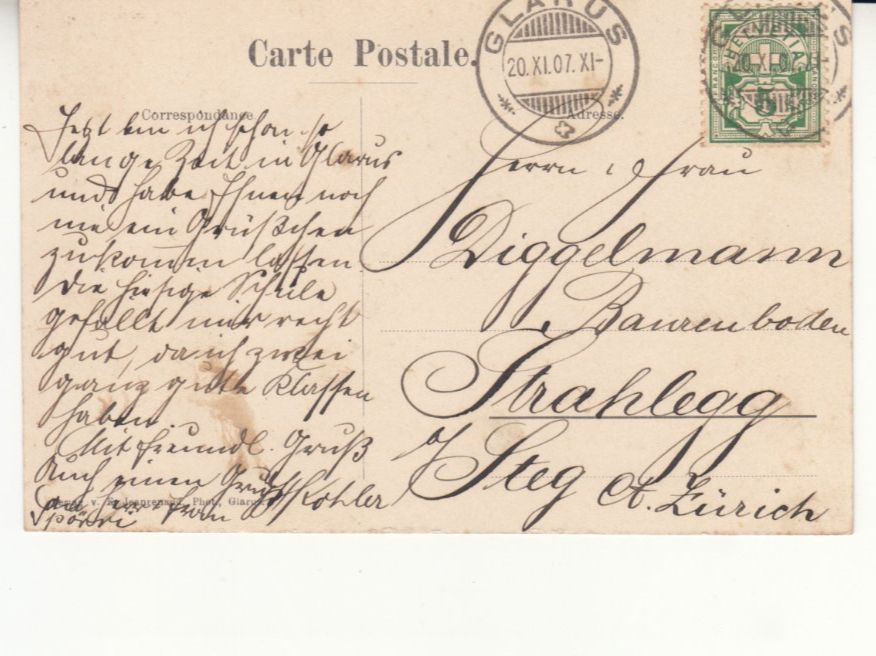 Carte Postale.
GLARUS
20.XI.07.XI-
GLARUS
20.XI.07.XI-
HELVETIA
FRANCO
5
Correspondance.
Adresse.
Jetzt bin ich schon so
lange Zeit in Glarus
und habe Ihnen noch
nie ein Grüßchen
zukommen lassen.
Die hiesige Schule
gefällt mir recht
gut, da ich zwei
ganz gute Klassen
haben.
Mit freundl. Gruß
Auch einen Gruß Kohler
an Herr & Frau
Spörri
v. Photo, Glarus
Herrn & Frau
Diggelmann
Baurenboden
Strahlegg
b/ Steg Ct. Zürich